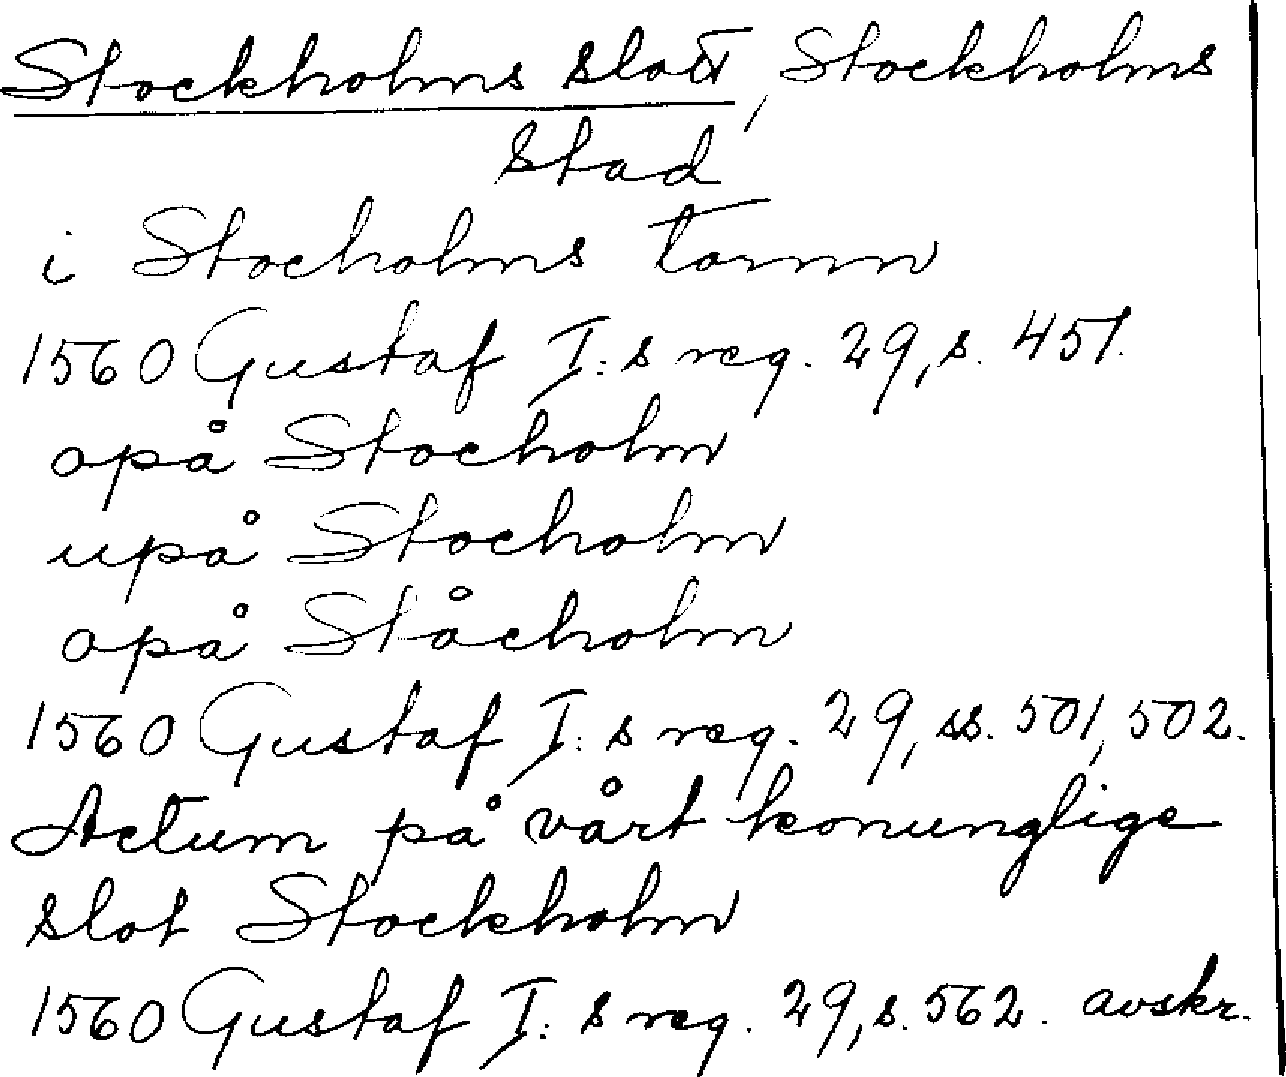 Stockholms slott, Stockholms
stad
i Stocholms tornn
1560 Gustaf I:s reg. 29, s. 451.
opå Stocholm
upå Stocholm
opå Ståcholm
1560 Gustaf I:s reg. 29, ss. 501, 502.
Actum på vårt konunglige
slot Stockholm
1560 Gustaf I:s reg. 29, s. 562. avskr.